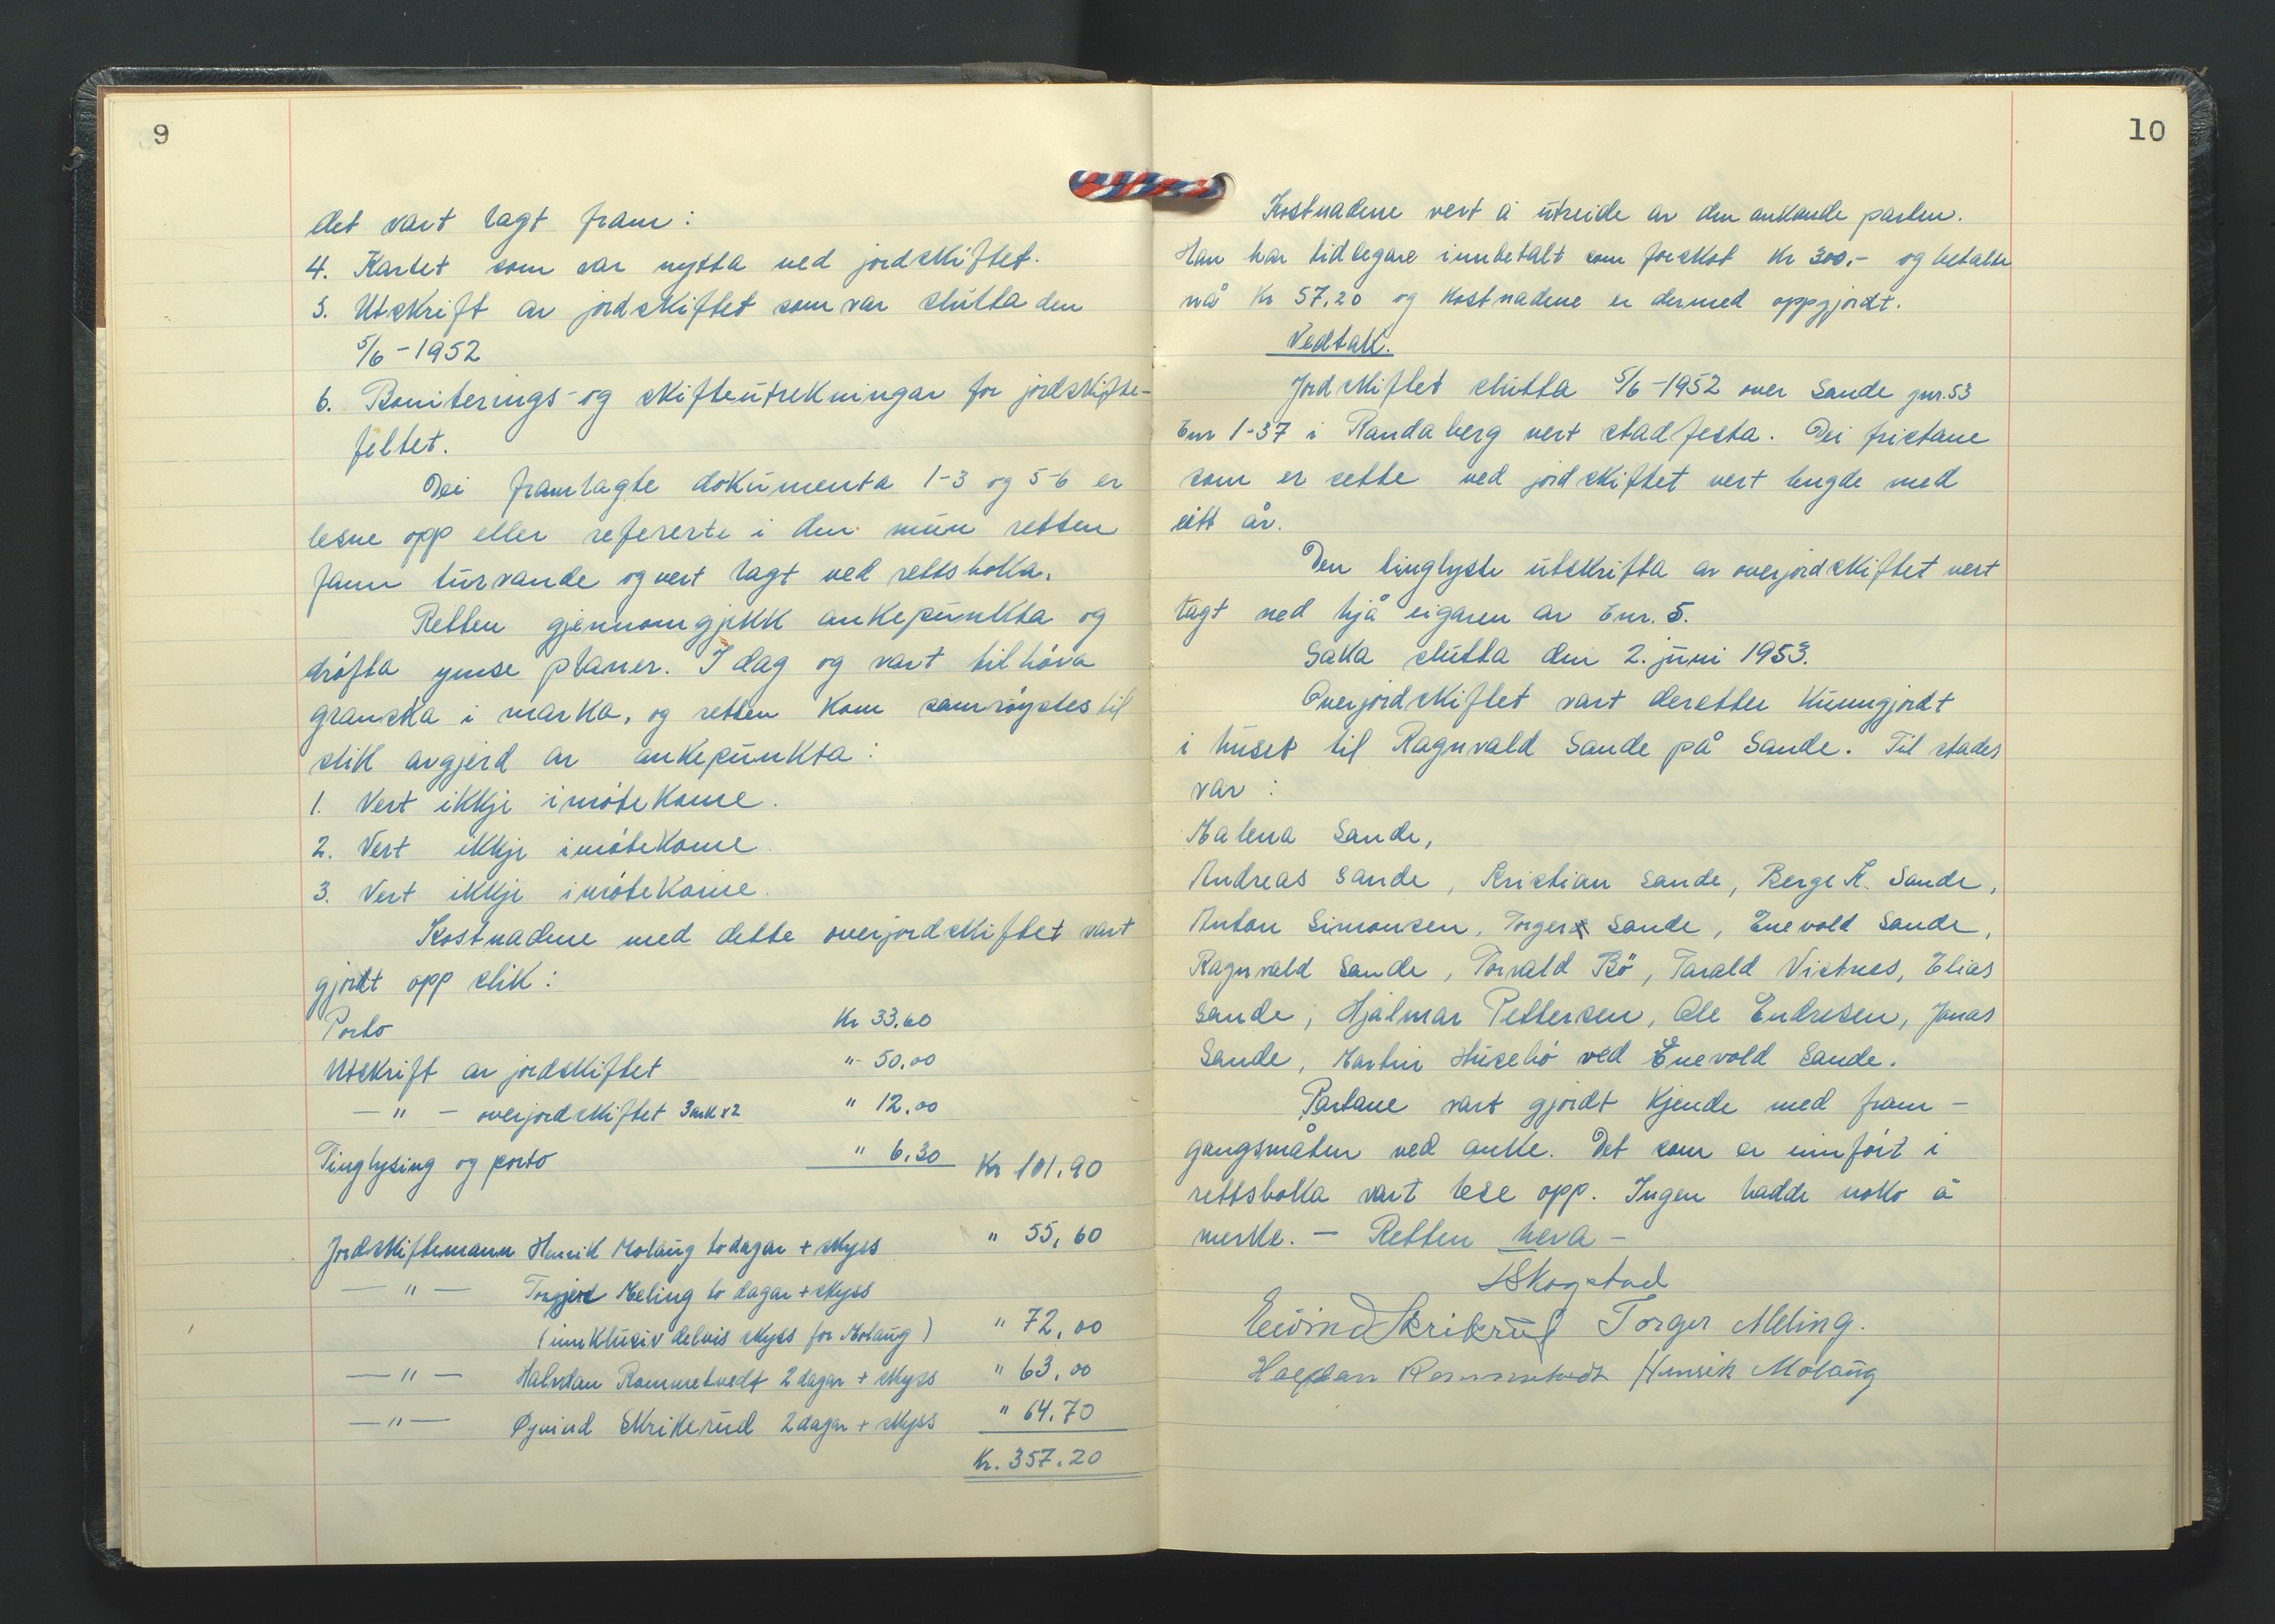 9
det vart lagt fram:
4. Kartet som var nytta ved jordskiftet.
5. Utskrift av jordskiftet som var slutta den
5/6-1952
6. Boniterings- og skifteutrekningar for jordskifte-
feltet.
Dei framlagte dokumenta 1-3 og 5-6 er
lesne opp eller refererte i den mun retten
fann turvande og vert lagt ved rettsboka.
Retten gjennomgjekk ankepunkta og
drøfta ymse planer. I dag og vart tilhøva
granska i marka, og retten kom samrøystes til
slik avgjerd av ankepunkta:
1. Vert ikkje imøtekome.
2. Vert ikkje imøtekome.
3. Vert ikkje imøtekome.
Kostnadene med dette overjordskiftet vart
gjordt opp slik:
Porto Kr 33.60
Utskrift av jordskiftet " 50.00
— " — overjordskiftet 3 ark x2 " 12.00
Tinglysing og porto " 6.30 Kr 101.90
Jordskiftemann Henrik Molaug to dagar + skyss " 55,60
— " — Torgjerd Meling to dagar + skyss
(innklusiv delvis skyss for Molaug) " 72,00
— " — Halvdan Rommetvedt 2 dagar + skyss " 63,00
— " — Øyvind Skrikerud 2 dagar + skyss " 64.70
Kr. 357.20
10
Kostnadene vert å utreide av den ankande parten.
Han har tidlegare innbetalt som forskot Kr 300.- og betalte
nå Kr 57.20 og kostnadene er dermed oppgjordt.
Vedtak.
Jordskiftet slutta 5/6-1952 over Sande gnr. 53
bnr 1-37 i Randaberg vert stadfesta. Dei fristane
som er sette ved jordskiftet vert lengde med
eitt år.
Den tinglyste utskrifta av overjordskiftet vert
lagt ned hjå eigaren av bnr. 5.
Saka slutta den 2. juni 1953.
Overjordskiftet vart deretter kunngjordt
i huset til Ragnvald Sande på Sande. Til stades
var:
Malena Sande,
Andreas Sande, Kristian Sande, Berge K. Sande,
Anton Simonsen, Torger Sande, Enevold Sande,
Ragnvald Sande, Torvald Bö, Tarald Vistnes, Elias
Sande, Hjalmar Pettersen, Ole Endresen, Jonas
Sande, Martin Husebø ved Enevold Sande.
Partane vart gjordt kjende med fram-
gangsmåten ved anke. Det som er innført i
rettsboka vart lese opp. Ingen hadde noko å
merke. — Retten heva —
Skogstad
Eivind Skrikrud Torger Meling.
Halfdan Rommetvedt Henrik Molaug